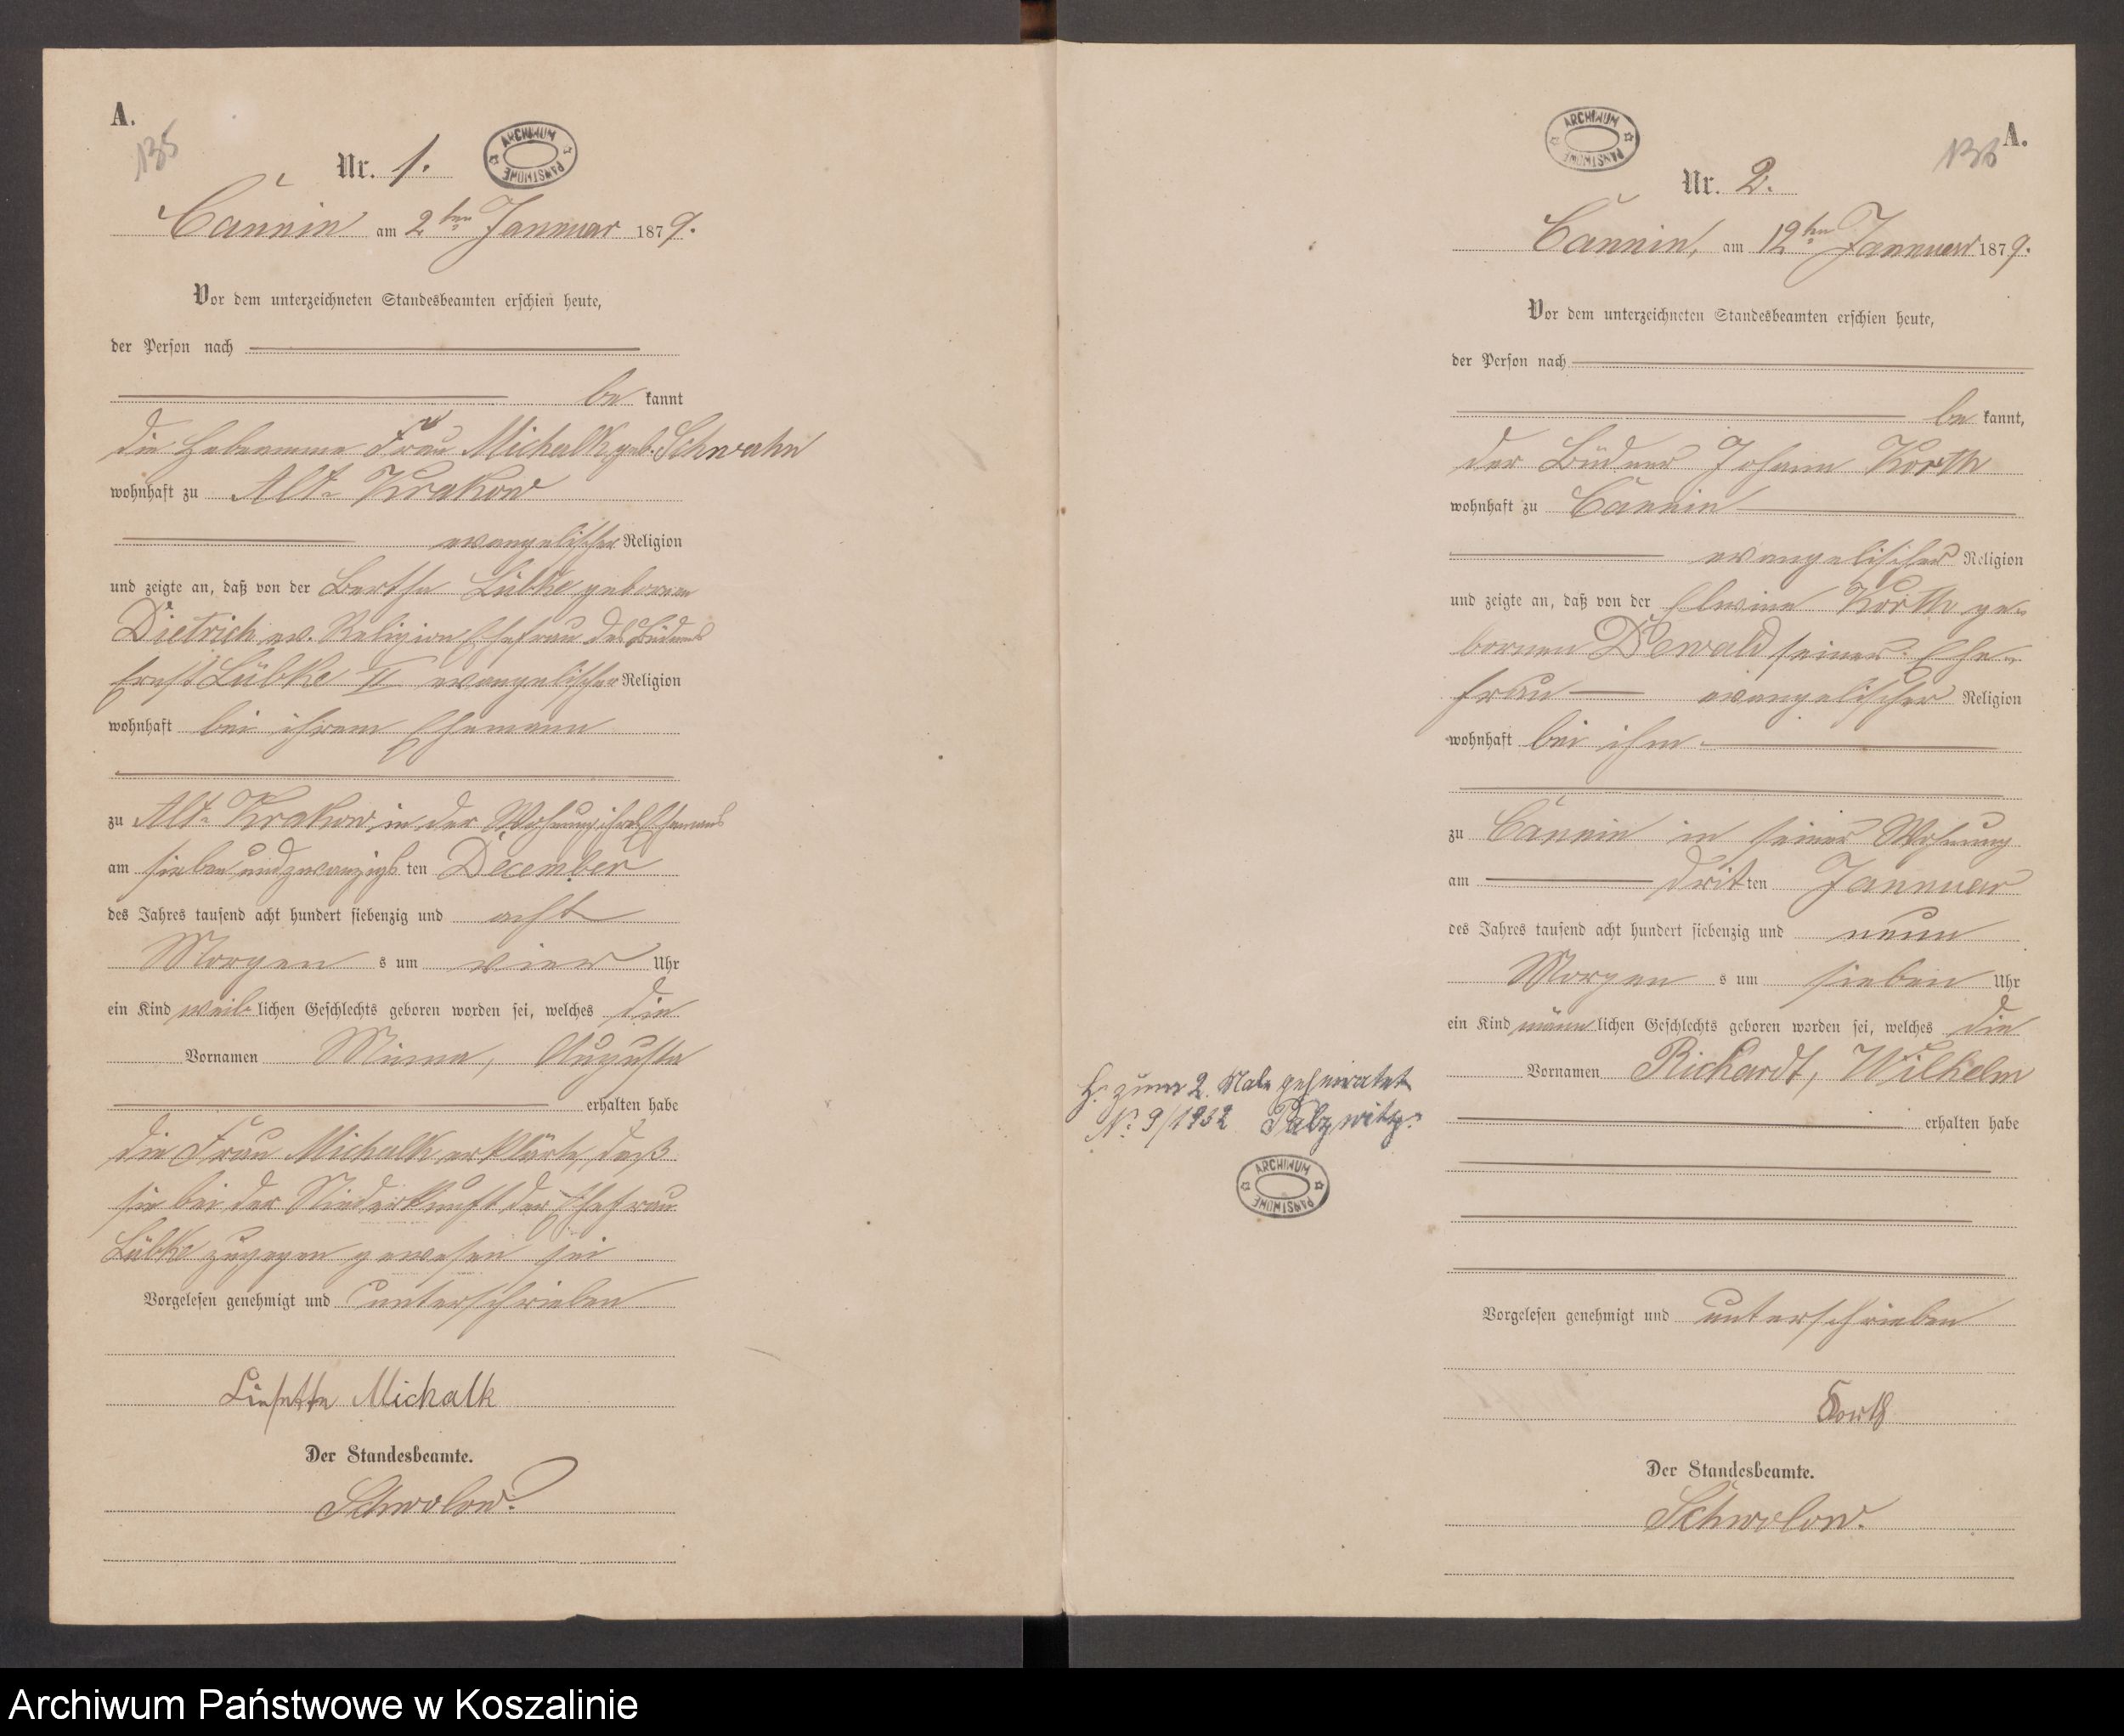 A.
135
Nr. 1.
ARCHIWUM PAŃSTWOWE
Cannin am 2ten Januar 1879.
Vor dem unterzeichneten Standesbeamten erschien heute,
der Person nach
be kannt
die Hebeamme Frau Michalk geb. Schwahn
wohnhaft zu Alt-Krakow
evangelischer Religion
und zeigte an, daß von der Bertha Lübke geborene
Dietrich ev. Religion Ehefrau des Büdners
Ernst Lübke II evangelischer Religion
wohnhaft bei ihrem Ehemann
zu Alt-Krakow in der Wohnung ihres Ehemanns
am sieben und zwanzigs ten December
des Jahres tausend acht hundert siebenzig und acht
Morgen s um vier Uhr
ein Kind weib lichen Geschlechts geboren worden sei, welches die
Vornamen Minna, Augusta
erhalten habe
die Frau Michalk erklärte, daß
sie bei der Niederkunft der Ehefrau
Lübke zugegen gewesen sei
Vorgelesen genehmigt und unterschrieben
Liesette Michalk
Der Standesbeamte.
Schwolow.
A.
136
ARCHIWUM PAŃSTWOWE
Nr. 2.
Cannin, am 12ten Januar 1879.
Vor dem unterzeichneten Standesbeamten erschien heute,
der Person nach
be kannt,
der Büdner Johann Korth
wohnhaft zu Cannin
evangelischer Religion
und zeigte an, daß von der Elwine Korth ge-
bornen Dewald seiner Ehe-
frau evangelischer Religion
wohnhaft bei ihm
zu Cannin in seiner Wohnung
am drit ten Januar
des Jahres tausend acht hundert siebenzig und neun
Morgen s um sieben Uhr
ein Kind männ lichen Geschlechts geboren worden sei, welches die
Vornamen Richardt, Wilhelm
erhalten habe
H. zum 2. Male geheiratet
Nº 9/1932 Palzwitz.
ARCHIWUM PAŃSTWOWE
Vorgelesen genehmigt und unterschrieben
Korth
Der Standesbeamte.
Schwolow.
Archiwum Państwowe w Koszalinie